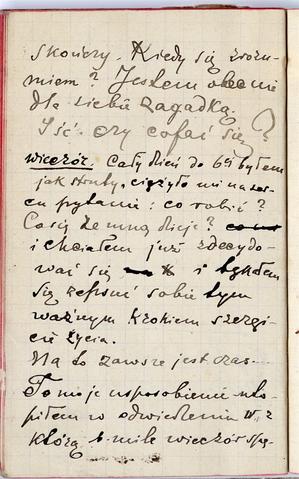 skończy. Kiedy się zrozu-
miem? Jestem obecnie
dla siebie zagadką.
Iść czy cofać się?
wieczór. Cały dzień do 6½ byłem
jak struty, ciężyło mi na ser-
cu pytanie: co robić?
Co się ze mną dzieje?
i chciałem już zdecydo-
wać się i byłem
się zepsuć sobie tym
ważnym krokiem szczęś-
cie życia.
Na to zawsze jest czas...
To moje usposobienie uto-
piłem w odwiedzeniu z
którą b. mile wieczór spę-